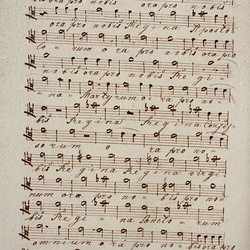 bis ora pro nobis ora pro nobis
ora pro nobis Regina Aposto
lo-rum o ra pro nobis ora pro
nobis ora pro nobis Regi
na Martyrum ora pro no
bis Regina Regina Confes
sorum o ra pro no
bis Regina Regina virgi
num ora pro nobis ora pro no
bis Regi na Sancto rum
omnium ora pro nobis